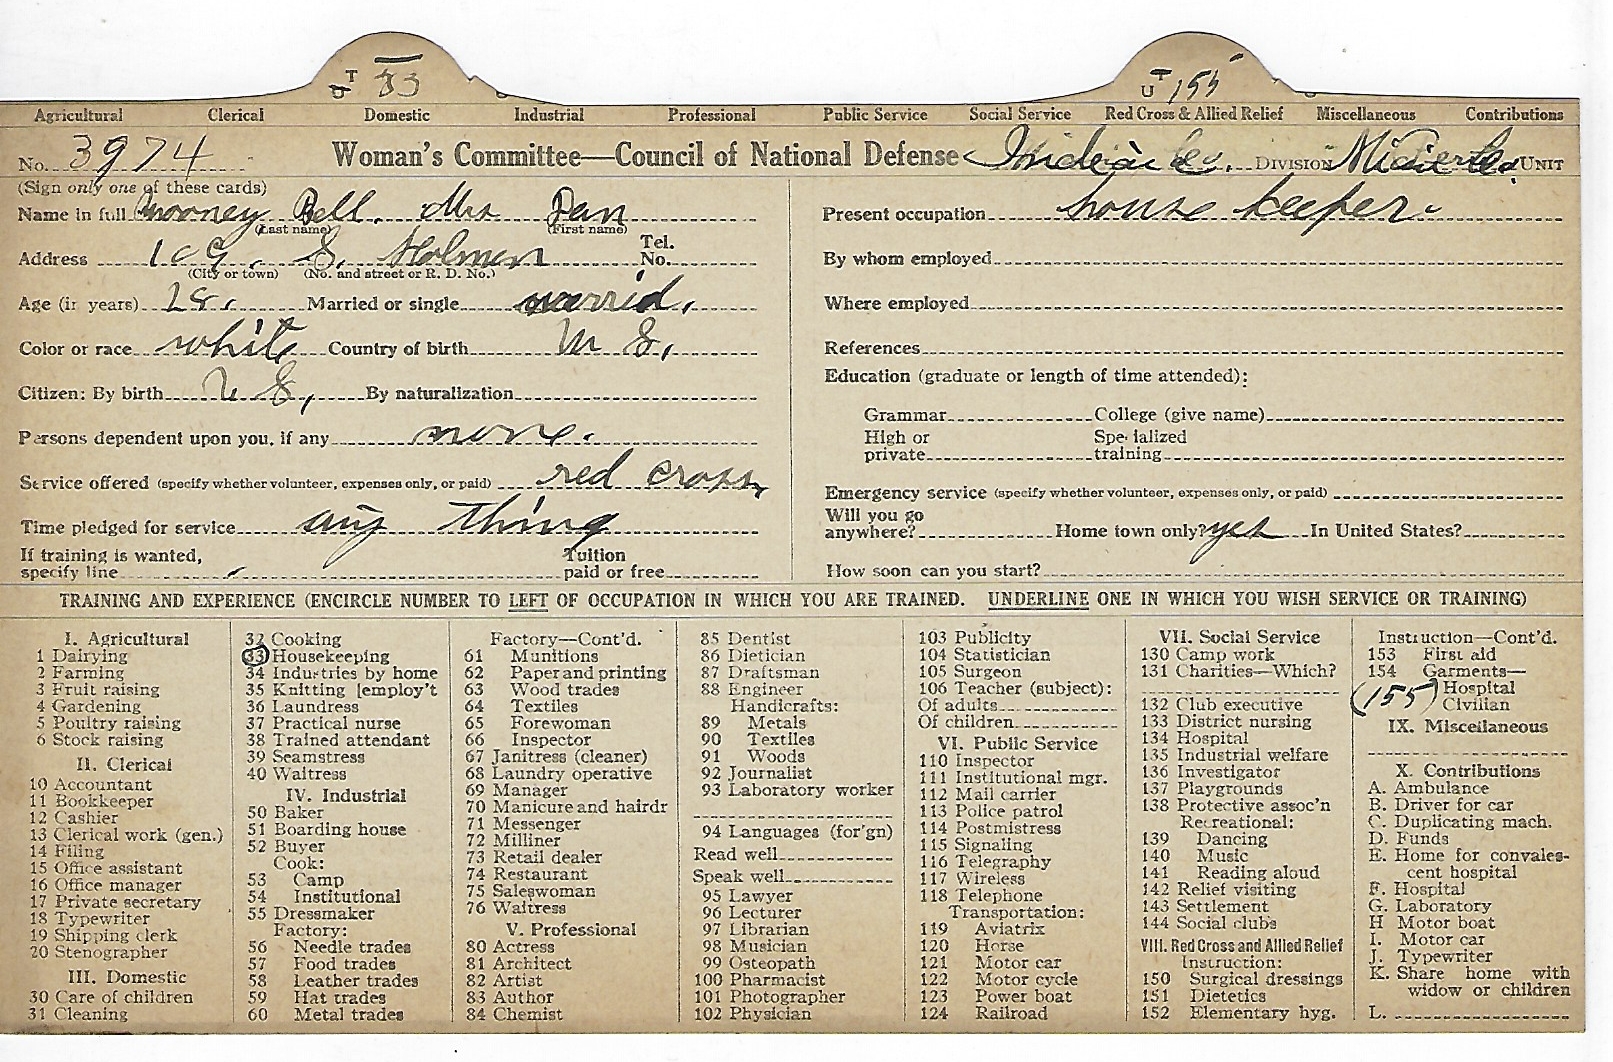 T U 33 T U 155
Agricultural Clerical Domestic Industrial Professional Public Service Social Service Red Cross & Allied Relief Miscellaneous Contributions
No. 3974 Woman's Committee—Council of National Defense DIVISION UNIT
(Sign only one of these cards)
Name in full Mooney Bell. Mrs Dan
(Last name) (First name)
Address 109. S. Holmen Tel. No.
(City or town) (No. and street or R. D. No.)
Age (in years) 28. Married or single married.
Color or race white Country of birth U S.
Citizen: By birth U S, By naturalization
Persons dependent upon you, if any none.
Service offered (specify whether volunteer, expenses only, or paid) red cross,
Time pledged for service any thing
If training is wanted, specify line Tuition paid or free
Present occupation house keeper.
By whom employed
Where employed
References
Education (graduate or length of time attended):
Grammar College (give name)
High or private Specialized training
Emergency service (specify whether volunteer, expenses only, or paid)
Will you go anywhere? Home town only? yes In United States?
How soon can you start?
TRAINING AND EXPERIENCE (ENCIRCLE NUMBER TO LEFT OF OCCUPATION IN WHICH YOU ARE TRAINED. UNDERLINE ONE IN WHICH YOU WISH SERVICE OR TRAINING)
I. Agricultural
1 Dairying
2 Farming
3 Fruit raising
4 Gardening
5 Poultry raising
6 Stock raising
II. Clerical
10 Accountant
11 Bookkeeper
12 Cashier
13 Clerical work (gen.)
14 Filing
15 Office assistant
16 Office manager
17 Private secretary
18 Typewriter
19 Shipping clerk
20 Stenographer
III. Domestic
30 Care of children
31 Cleaning
32 Cooking
33 Housekeeping
34 Industries by home
35 Knitting [employ't
36 Laundress
37 Practical nurse
38 Trained attendant
39 Seamstress
40 Waitress
IV. Industrial
50 Baker
51 Boarding house
52 Buyer
Cook:
53 Camp
54 Institutional
55 Dressmaker
Factory:
56 Needle trades
57 Food trades
58 Leather trades
59 Hat trades
60 Metal trades
Factory—Cont'd.
61 Munitions
62 Paper and printing
63 Wood trades
64 Textiles
65 Forewoman
66 Inspector
67 Janitress (cleaner)
68 Laundry operative
69 Manager
70 Manicure and hairdr
71 Messenger
72 Milliner
73 Retail dealer
74 Restaurant
75 Saleswoman
76 Waitress
V. Professional
80 Actress
81 Architect
82 Artist
83 Author
84 Chemist
85 Dentist
86 Dietician
87 Draftsman
88 Engineer
Handicrafts:
89 Metals
90 Textiles
91 Woods
92 Journalist
93 Laboratory worker
94 Languages (for'gn)
Read well
Speak well
95 Lawyer
96 Lecturer
97 Librarian
98 Musician
99 Osteopath
100 Pharmacist
101 Photographer
102 Physician
103 Publicity
104 Statistician
105 Surgeon
106 Teacher (subject):
Of adults
Of children
VI. Public Service
110 Inspector
111 Institutional mgr.
112 Mail carrier
113 Police patrol
114 Postmistress
115 Signaling
116 Telegraphy
117 Wireless
118 Telephone
Transportation:
119 Aviatrix
120 Horse
121 Motor car
122 Motor cycle
123 Power boat
124 Railroad
VII. Social Service
130 Camp work
131 Charities—Which?
132 Club executive
133 District nursing
134 Hospital
135 Industrial welfare
136 Investigator
137 Playgrounds
138 Protective assoc'n
Recreational:
139 Dancing
140 Music
141 Reading aloud
142 Relief visiting
143 Settlement
144 Social clubs
VIII. Red Cross and Allied Relief
Instruction:
150 Surgical dressings
151 Dietetics
152 Elementary hyg.
Instruction—Cont'd.
153 First aid
154 Garments—
(155) Hospital
Civilian
IX. Miscellaneous
X. Contributions
A. Ambulance
B. Driver for car
C. Duplicating mach.
D. Funds
E. Home for convales-
cent hospital
F. Hospital
G. Laboratory
H Motor boat
I. Motor car
J. Typewriter
K. Share home with
widow or children
L.